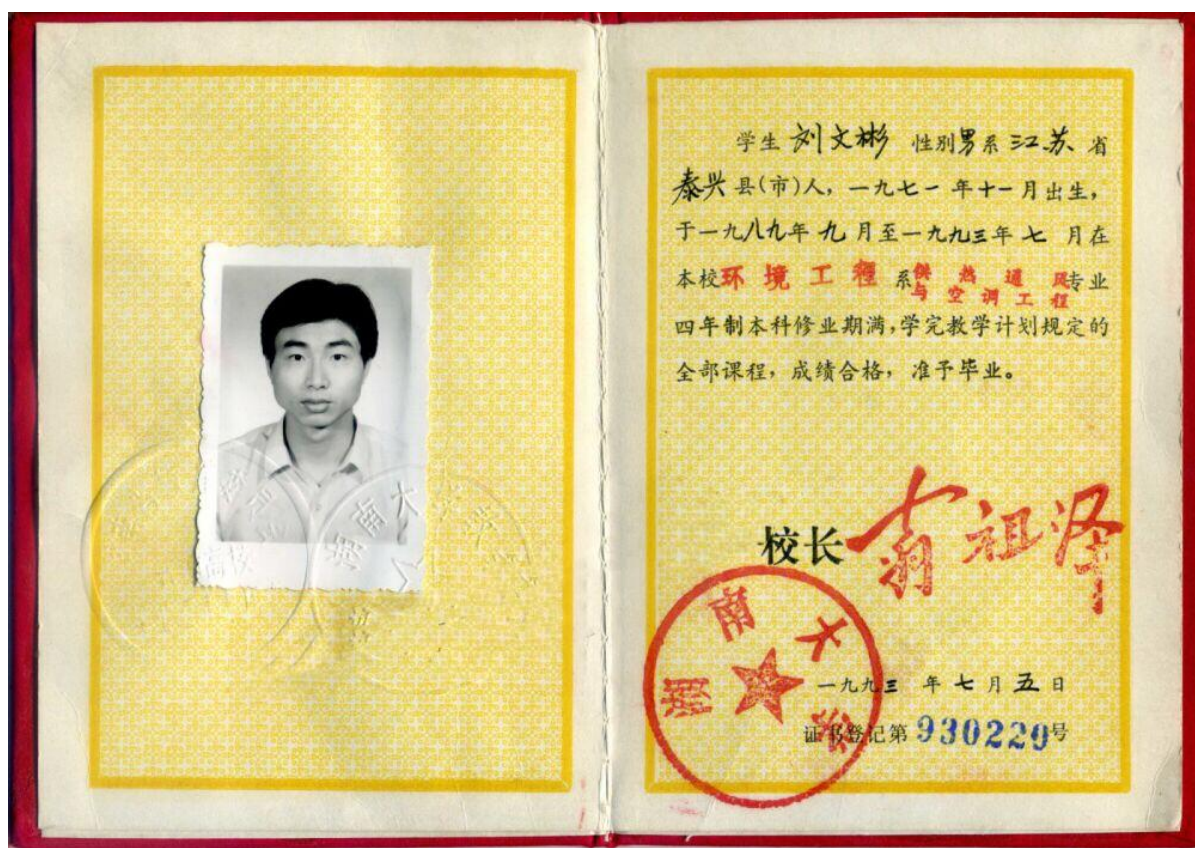 湖南大
学生 刘文彬 性别男系 江苏 省
泰兴县(市)人，一九七一年十一月出生，
于一九八九年九月至一九九三年七月在
本校环境工程系供热通风与空调工程专业
四年制本科修业期满，学完教学计划规定的
全部课程，成绩合格，准予毕业。
校长 翁祖泽
湖南大学
一九九三年七月五日
证书登记第930229号